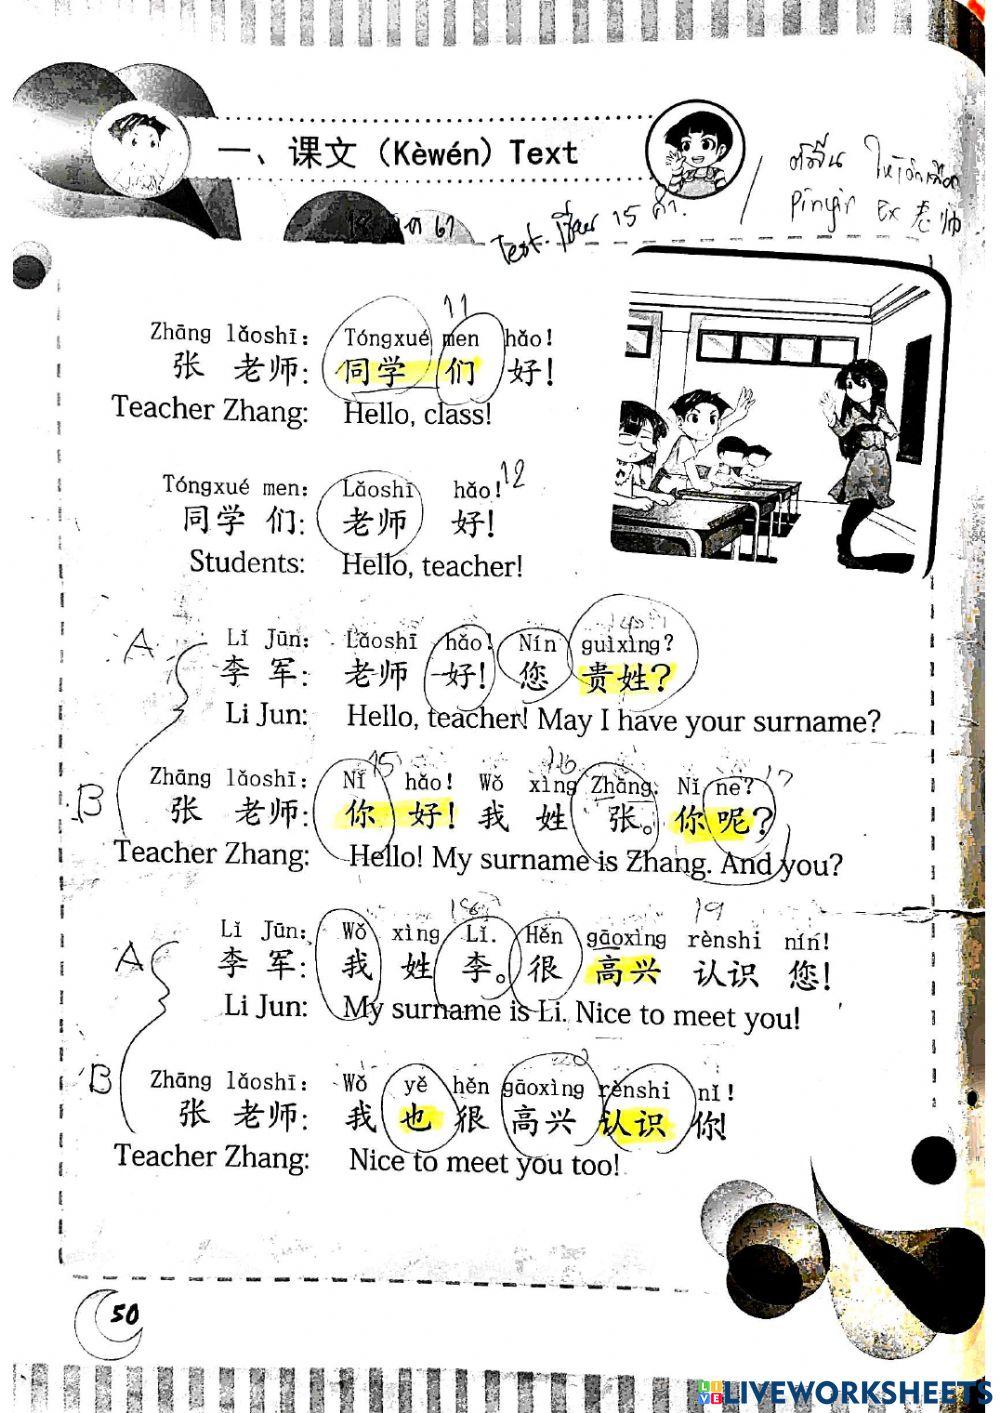 一、课文 (Kèwén) Text
Pīnyīn Ex 老师
Test เขียน 15 คำ.
11
Zhāng lǎoshī: Tóngxué men hǎo!
张 老师: 同学 们 好!
Teacher Zhang: Hello, class!
12
Tóngxué men: Lǎoshī hǎo!
同学 们: 老师 好!
Students: Hello, teacher!
A
Lǐ Jūn: Lǎoshī hǎo! Nín guìxìng?
李 军: 老师 好! 您 贵姓?
Li Jun: Hello, teacher! May I have your surname?
15 16 17
B
Zhāng lǎoshī: Nǐ hǎo! Wǒ xìng Zhāng. Nǐ ne?
张 老师: 你 好! 我 姓 张。 你 呢?
Teacher Zhang: Hello! My surname is Zhang. And you?
18 19
A
Lǐ Jūn: Wǒ xìng Lǐ. Hěn gāoxìng rènshi nín!
李 军: 我 姓 李。 很 高兴 认识 您!
Li Jun: My surname is Li. Nice to meet you!
B
Zhāng lǎoshī: Wǒ yě hěn gāoxìng rènshi nǐ!
张 老师: 我 也 很 高兴 认识 你!
Teacher Zhang: Nice to meet you too!
50
LIVEWORKSHEETS